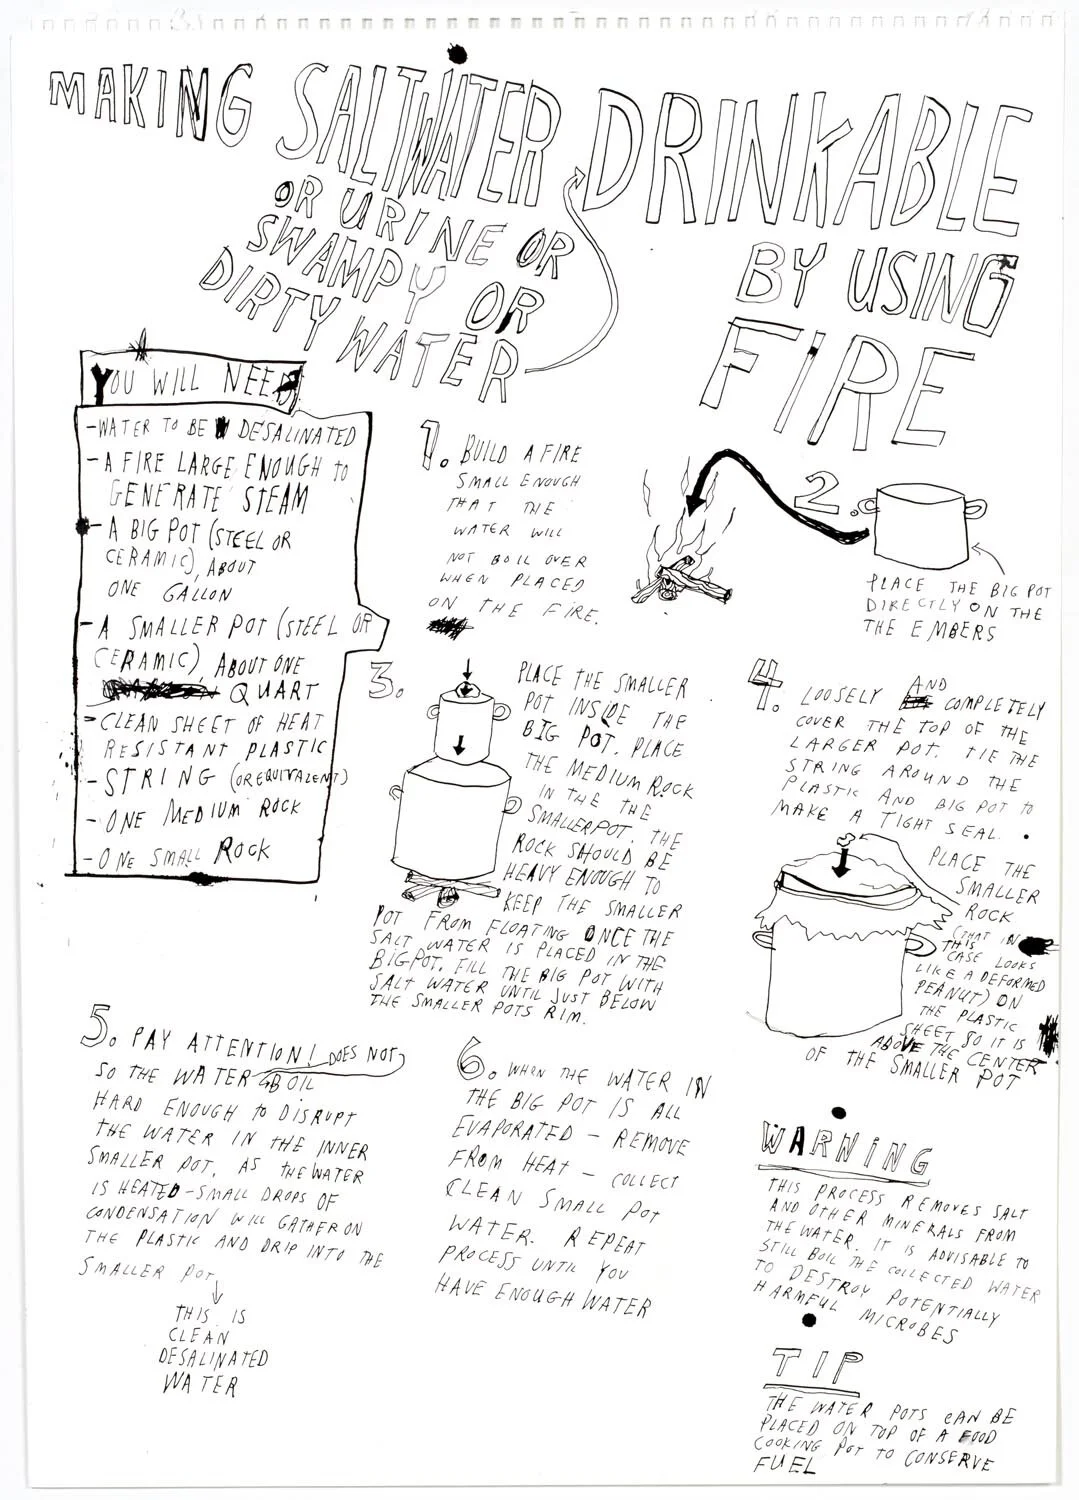 MAKING SALTWATER DRINKABLE
OR URINE OR
SWAMPY OR
DIRTY WATER
BY USING
FIRE
YOU WILL NEED
-WATER TO BE DESALINATED
-A FIRE LARGE ENOUGH TO
GENERATE STEAM
-A BIG POT (STEEL OR
CERAMIC), ABOUT
ONE GALLON
-A SMALLER POT (STEEL OR
CERAMIC), ABOUT ONE
QUART
-CLEAN SHEET OF HEAT
RESISTANT PLASTIC
-STRING (OR EQUIVALENT)
-ONE MEDIUM ROCK
-ONE SMALL ROCK
1. BUILD A FIRE
SMALL ENOUGH
THAT THE
WATER WILL
NOT BOIL OVER
WHEN PLACED
ON THE FIRE.
2.
PLACE THE BIG POT
DIRECTLY ON THE
THE EMBERS
3.
PLACE THE SMALLER
POT INSIDE THE
BIG POT. PLACE
THE MEDIUM ROCK
IN THE THE
SMALLER POT. THE
ROCK SHOULD BE
HEAVY ENOUGH TO
KEEP THE SMALLER
POT FROM FLOATING ONCE THE
SALT WATER IS PLACED IN THE
BIG POT. FILL THE BIG POT WITH
SALT WATER UNTIL JUST BELOW
THE SMALLER POTS RIM.
4.
LOOSELY AND COMPLETELY
COVER THE TOP OF THE
LARGER POT. TIE THE
STRING AROUND THE
PLASTIC AND BIG POT TO
MAKE A TIGHT SEAL.
PLACE THE
SMALLER
ROCK
(THAT IN
THIS CASE LOOKS
LIKE A DEFORMED
PEANUT) ON
THE PLASTIC
SHEET SO IT IS
ABOVE THE CENTER
OF THE SMALLER POT
5. PAY ATTENTION! DOES NOT
SO THE WATER BOIL
HARD ENOUGH TO DISRUPT
THE WATER IN THE INNER
SMALLER POT. AS THE WATER
IS HEATED-SMALL DROPS OF
CONDENSATION WILL GATHER ON
THE PLASTIC AND DRIP INTO THE
SMALLER POT
THIS IS
CLEAN
DESALINATED
WATER
6. WHEN THE WATER IN
THE BIG POT IS ALL
EVAPORATED - REMOVE
FROM HEAT - COLLECT
CLEAN SMALL POT
WATER. REPEAT
PROCESS UNTIL YOU
HAVE ENOUGH WATER
WARNING
THIS PROCESS REMOVES SALT
AND OTHER MINERALS FROM
THE WATER. IT IS ADVISABLE TO
STILL BOIL THE COLLECTED WATER
TO DESTROY POTENTIALLY
HARMFUL MICROBES
TIP
THE WATER POTS CAN BE
PLACED ON TOP OF A FOOD
COOKING POT TO CONSERVE
FUEL